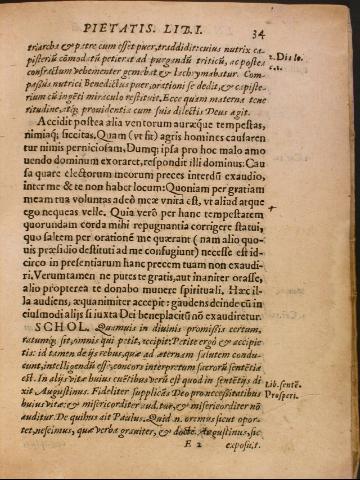 PIETATIS. LIB. I.
34
triarcha & patre cum esset puer, traddidit: cuius nutrix ca-
pisteriū cōmodatū petierat ad purgandū triticū, ac postea
confractum vehementer gemebat & lachrymabatur. Com-
passus nutrici Benedictus puer, orationi se dedit, & capiste-
rium cū ingēti miraculo restituit. Ecce quàm materna tene
ritudine, atq; prouidentia cum suis dilectis Deus agit.
Accidit postea alia ventorum auræque tempestas,
nimiaq; siccitas. Quam (vt fit) agris homines causaren
tur nimis perniciosam, Dumq; ipsa pro hoc malo amo
uendo dominum exoraret, respondit illi dominus: Cau
sa quare electorum meorum preces interdū exaudio,
inter me & te non habet locum: Quoniam per gratiam
meam tua voluntas adeò meæ vnita est, vt aliud atque
ego nequeas velle. Quia verò per hanc tempestatem
quorundam corda mihi repugnantia corrigere statui,
quo saltem per orationē me quærant (nam alio quo-
uis præsidio destituti ad me confugiunt) necesse est id-
circo in præsentiarum hanc precem tuam non exaudi-
ri. Verumtamen ne putes te gratis, aut inaniter orasse,
alio propterea te donabo munere spirituali. Hæc il-
la audiens, æquanimiter accepit: gaudens deinde cū in
eiusmodi alijs si iuxta Dei beneplacitū nō exaudiretur.
SCHOL. Quamuis in diuinis promissis certum,
ratumq; sit, omnis qui petit, accipit: Petite ergo & accipie-
tis: id tamen de ijs rebus, quæ ad æternam salutem condu-
cunt, intelligendū est, concors interpretum sacrorū sentētia
est. In alijs vitæ huius euētibus verū est quod in sentētijs di
xit Augustinus. Fideliter supplicās Deo pro necessitatibus
huius vitæ: & misericorditer auditur, & misericorditer nō
auditur. De quibus ait Paulus. Quid n. oremus sicut opor-
tet, nescimus, quæ verba grauiter, & docte Augustinus, sic
E 2
exposuit.
2. Dialo.
Lib. sentē.
Prosperi.